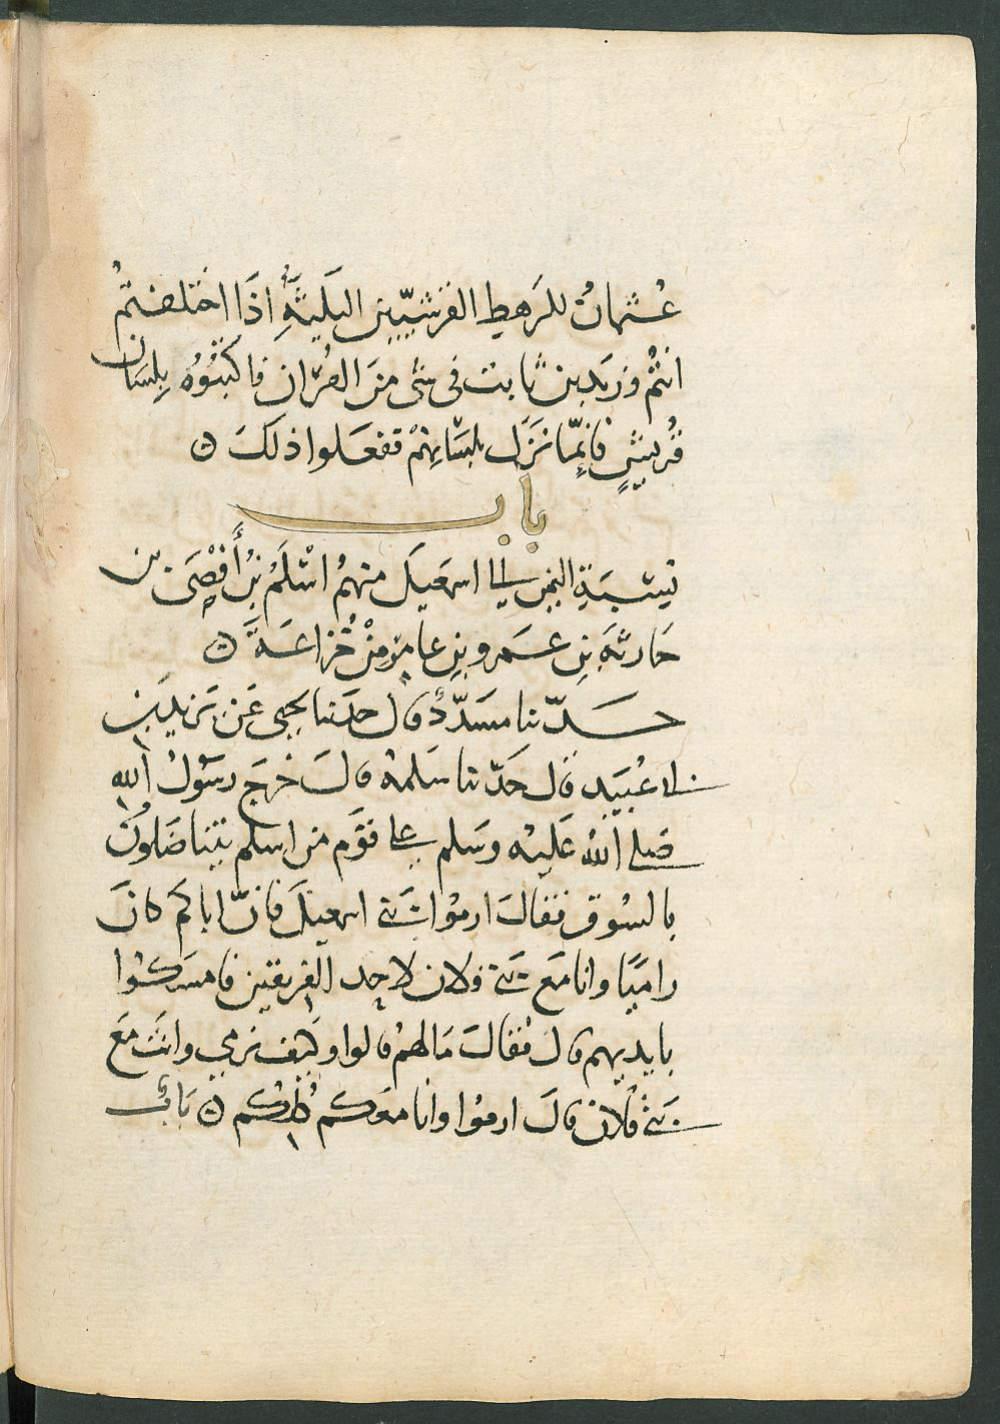 عُثمانُ للرَهطِ القرَشيّينَ الثَلثَةِ اذَا اختلفتمُ
انتُم وزَيدبن ثابت فى شئ منَ القُران فاكتبُوُه بِلسَان
قُريشٍ فَانِمّا نزَل بلسَانِهمْ ففعَلوا ذلكَ
باب
نِسْبَةِ اليَمن الى اسمعيلَ منهمُ اسْلَمُ بنُ أَفْصَى بن
حَارثَةَ بنِ عَمرو بنِ عامرٍ منْ خُزاعَةَ
حَدّثنا مسَدّدٌ قال حدّثنا يحيى عَن يَزيدَبن
ابى عُبَيَد قال حَدّثنا سَلمةُ قالَ خرَج رسَولُ الله
صَلى اللهُ عَليْه وسَلم على قوَم من اسلَم يتناضَلونَ
بالسُوق فقالَ ارمُوا بَنى اسمعيلَ فانّ اباكم كانَ
رامَيًا وانا معَ بَنى فلان لاحِد الفريقين فامسَكوُا
بايديهم قال فقالَ مَالهمُ قالوا وكَيف نرمي وانتَ معَ
بَنى فُلان قالَ ارموُا وانا معَكم كُلكُم بَابُ